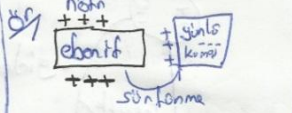 ör/
nötr
+ + +
ebonit
+++
+
+
+
yünlü
kumaş
sürtünme